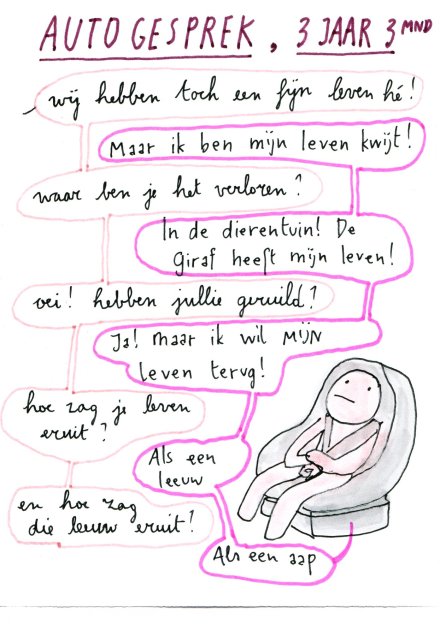 AUTOGESPREK, 3 JAAR 3 MND
wij hebben toch een fijn leven hé!
Maar ik ben mijn leven kwijt!
waar ben je het verloren?
In de dierentuin! De
giraf heeft mijn leven!
oei! hebben jullie geruild?
Ja! maar ik wil MIJN
leven terug!
hoe zag je leven
eruit?
Als een
leeuw
en hoe zag
die leeuw eruit?
Als een aap